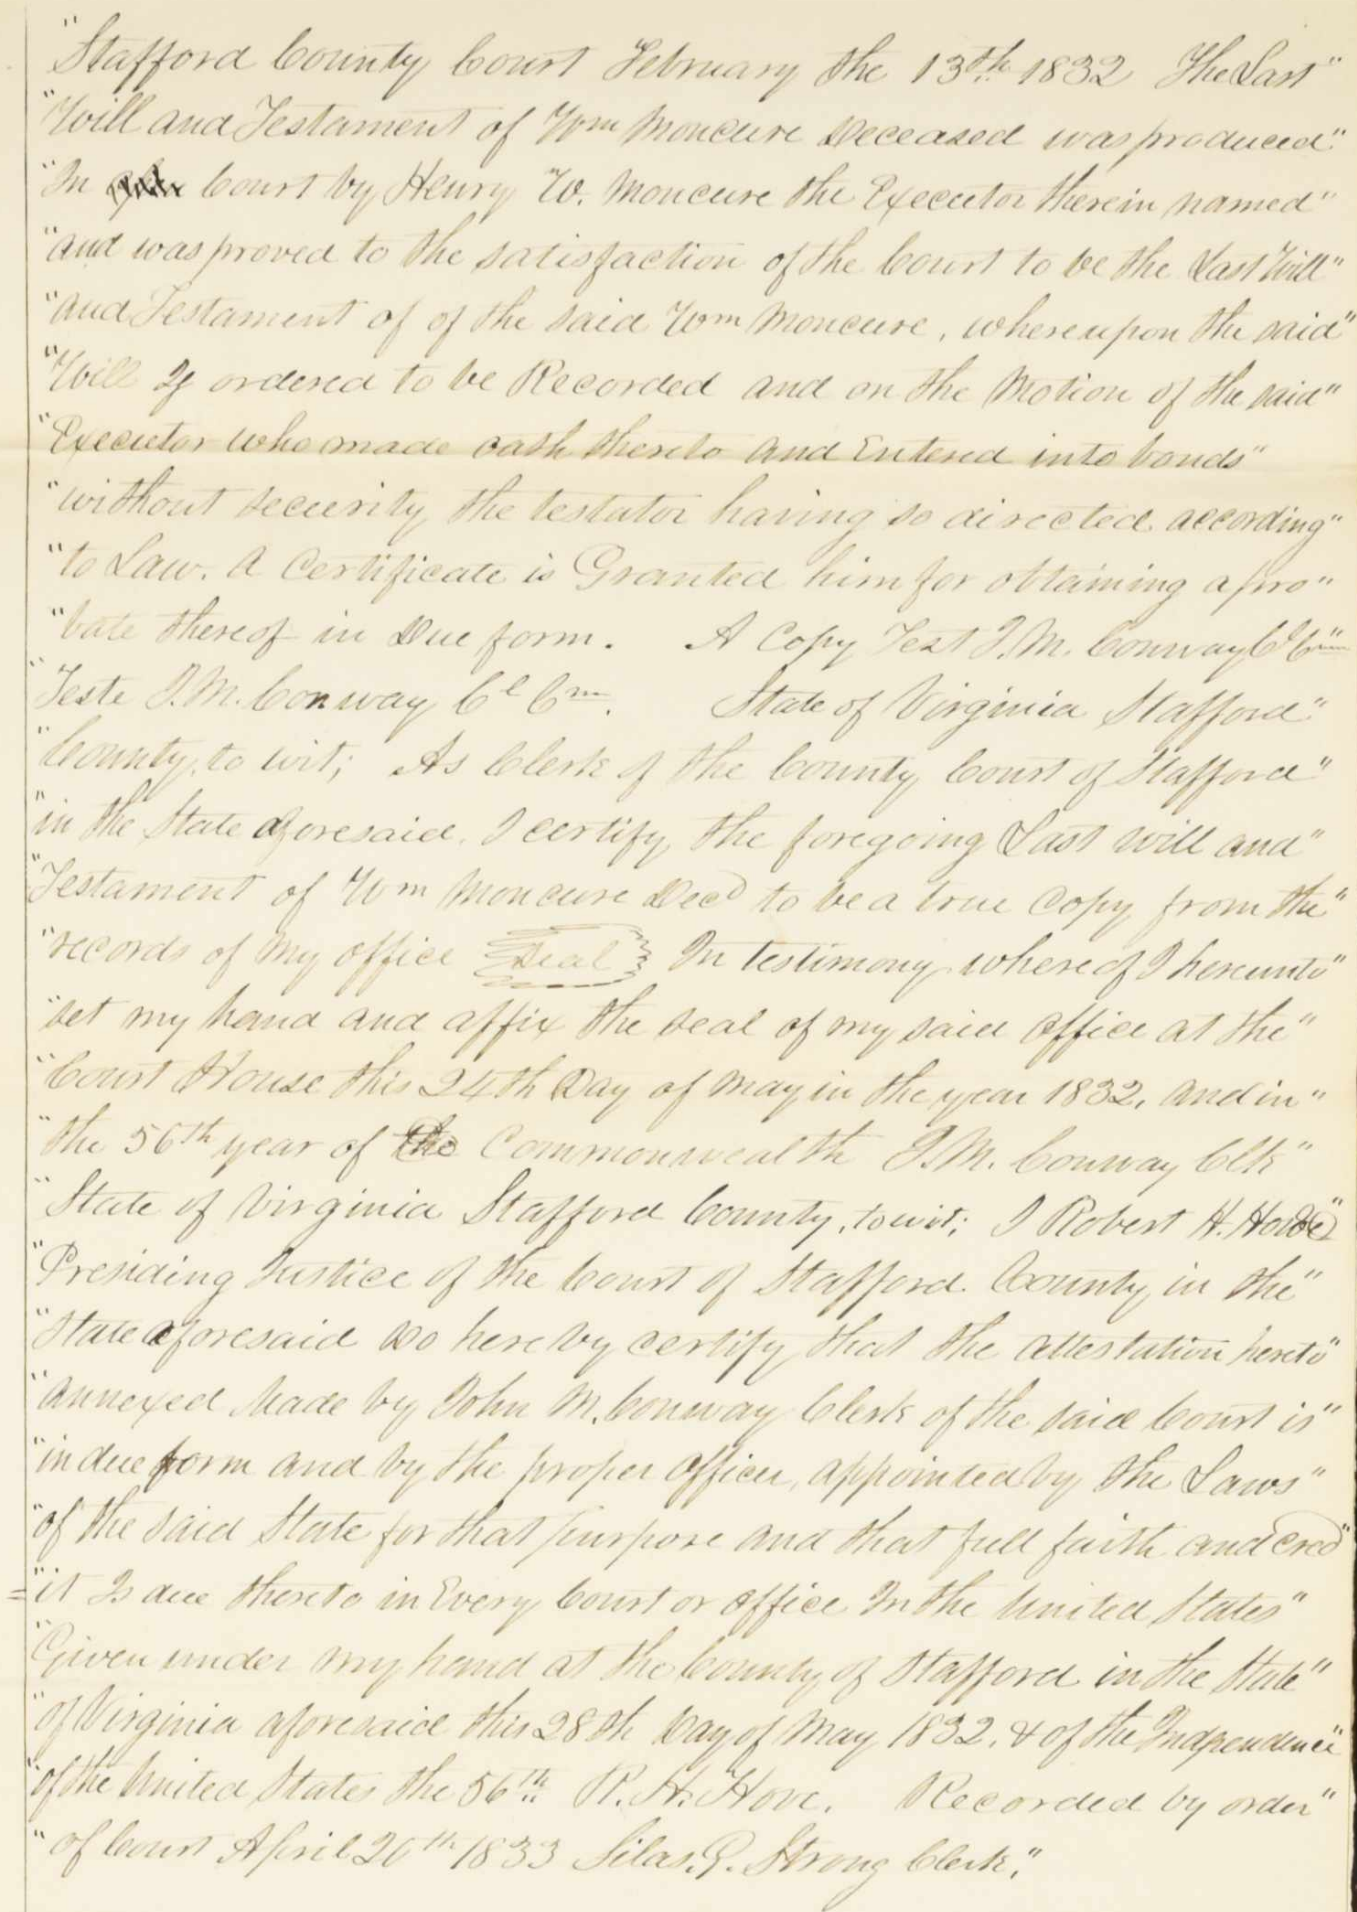 "Stafford County Court February the 13th 1832 The Last"
"Will and Testament of Wm Moncure Deceased was produced"
"In Court by Henry W. Moncure the Executor therein named"
"and was proved to the satisfaction of the Court to be the Last Will"
"and Testament of of the said Wm Moncure, whereupon the said"
"Will Is ordered to be Recorded and on the Motion of the said"
"Executor who made oath thereto and Entered into bonds"
"without security the testator having so directed according"
"to Law. A Certificate is Granted him for obtaining a pro"
"bate thereof in Due form. A Copy Test J.M. Conway Cl Cm"
"Teste J.M. Conway Cl Cm. State of Virginia Stafford"
"County, to wit; As Clerk of the County Court of Stafford"
"in the State aforesaid. I certify the foregoing Last will and"
"Testament of Wm Moncure Decd to be a true Copy from the"
"records of my office Seal In testimony whereof I hereunto"
"set my hand and affix the seal of my said office at the"
"Court House this 24th Day of May in the year 1832. and in"
"the 56th year of the Commonwealth J.M. Conway Clk"
"State of Virginia Stafford County, to wit; I Robert H. Hove"
"Presiding Justice of the Court of Stafford County in the"
"State aforesaid Do here by certify that the attestation hereto"
"annexed Made by John M. Conway Clerk of the said Court is"
"in due form and by the proper officer, appointed by the Laws"
"of the said State for that purpose and that full faith and cred"
="it Is due thereto in Every Court or office In the United States"
"Given under my hand at the County of Stafford in the State"
"of Virginia aforesaid this 28th Day of May 1832. & of the Indpendence"
"of the United States the 56th. R. H. Hove. Recorded by order"
"of Court April 20th 1833 Silas. G. Strong Clerk."